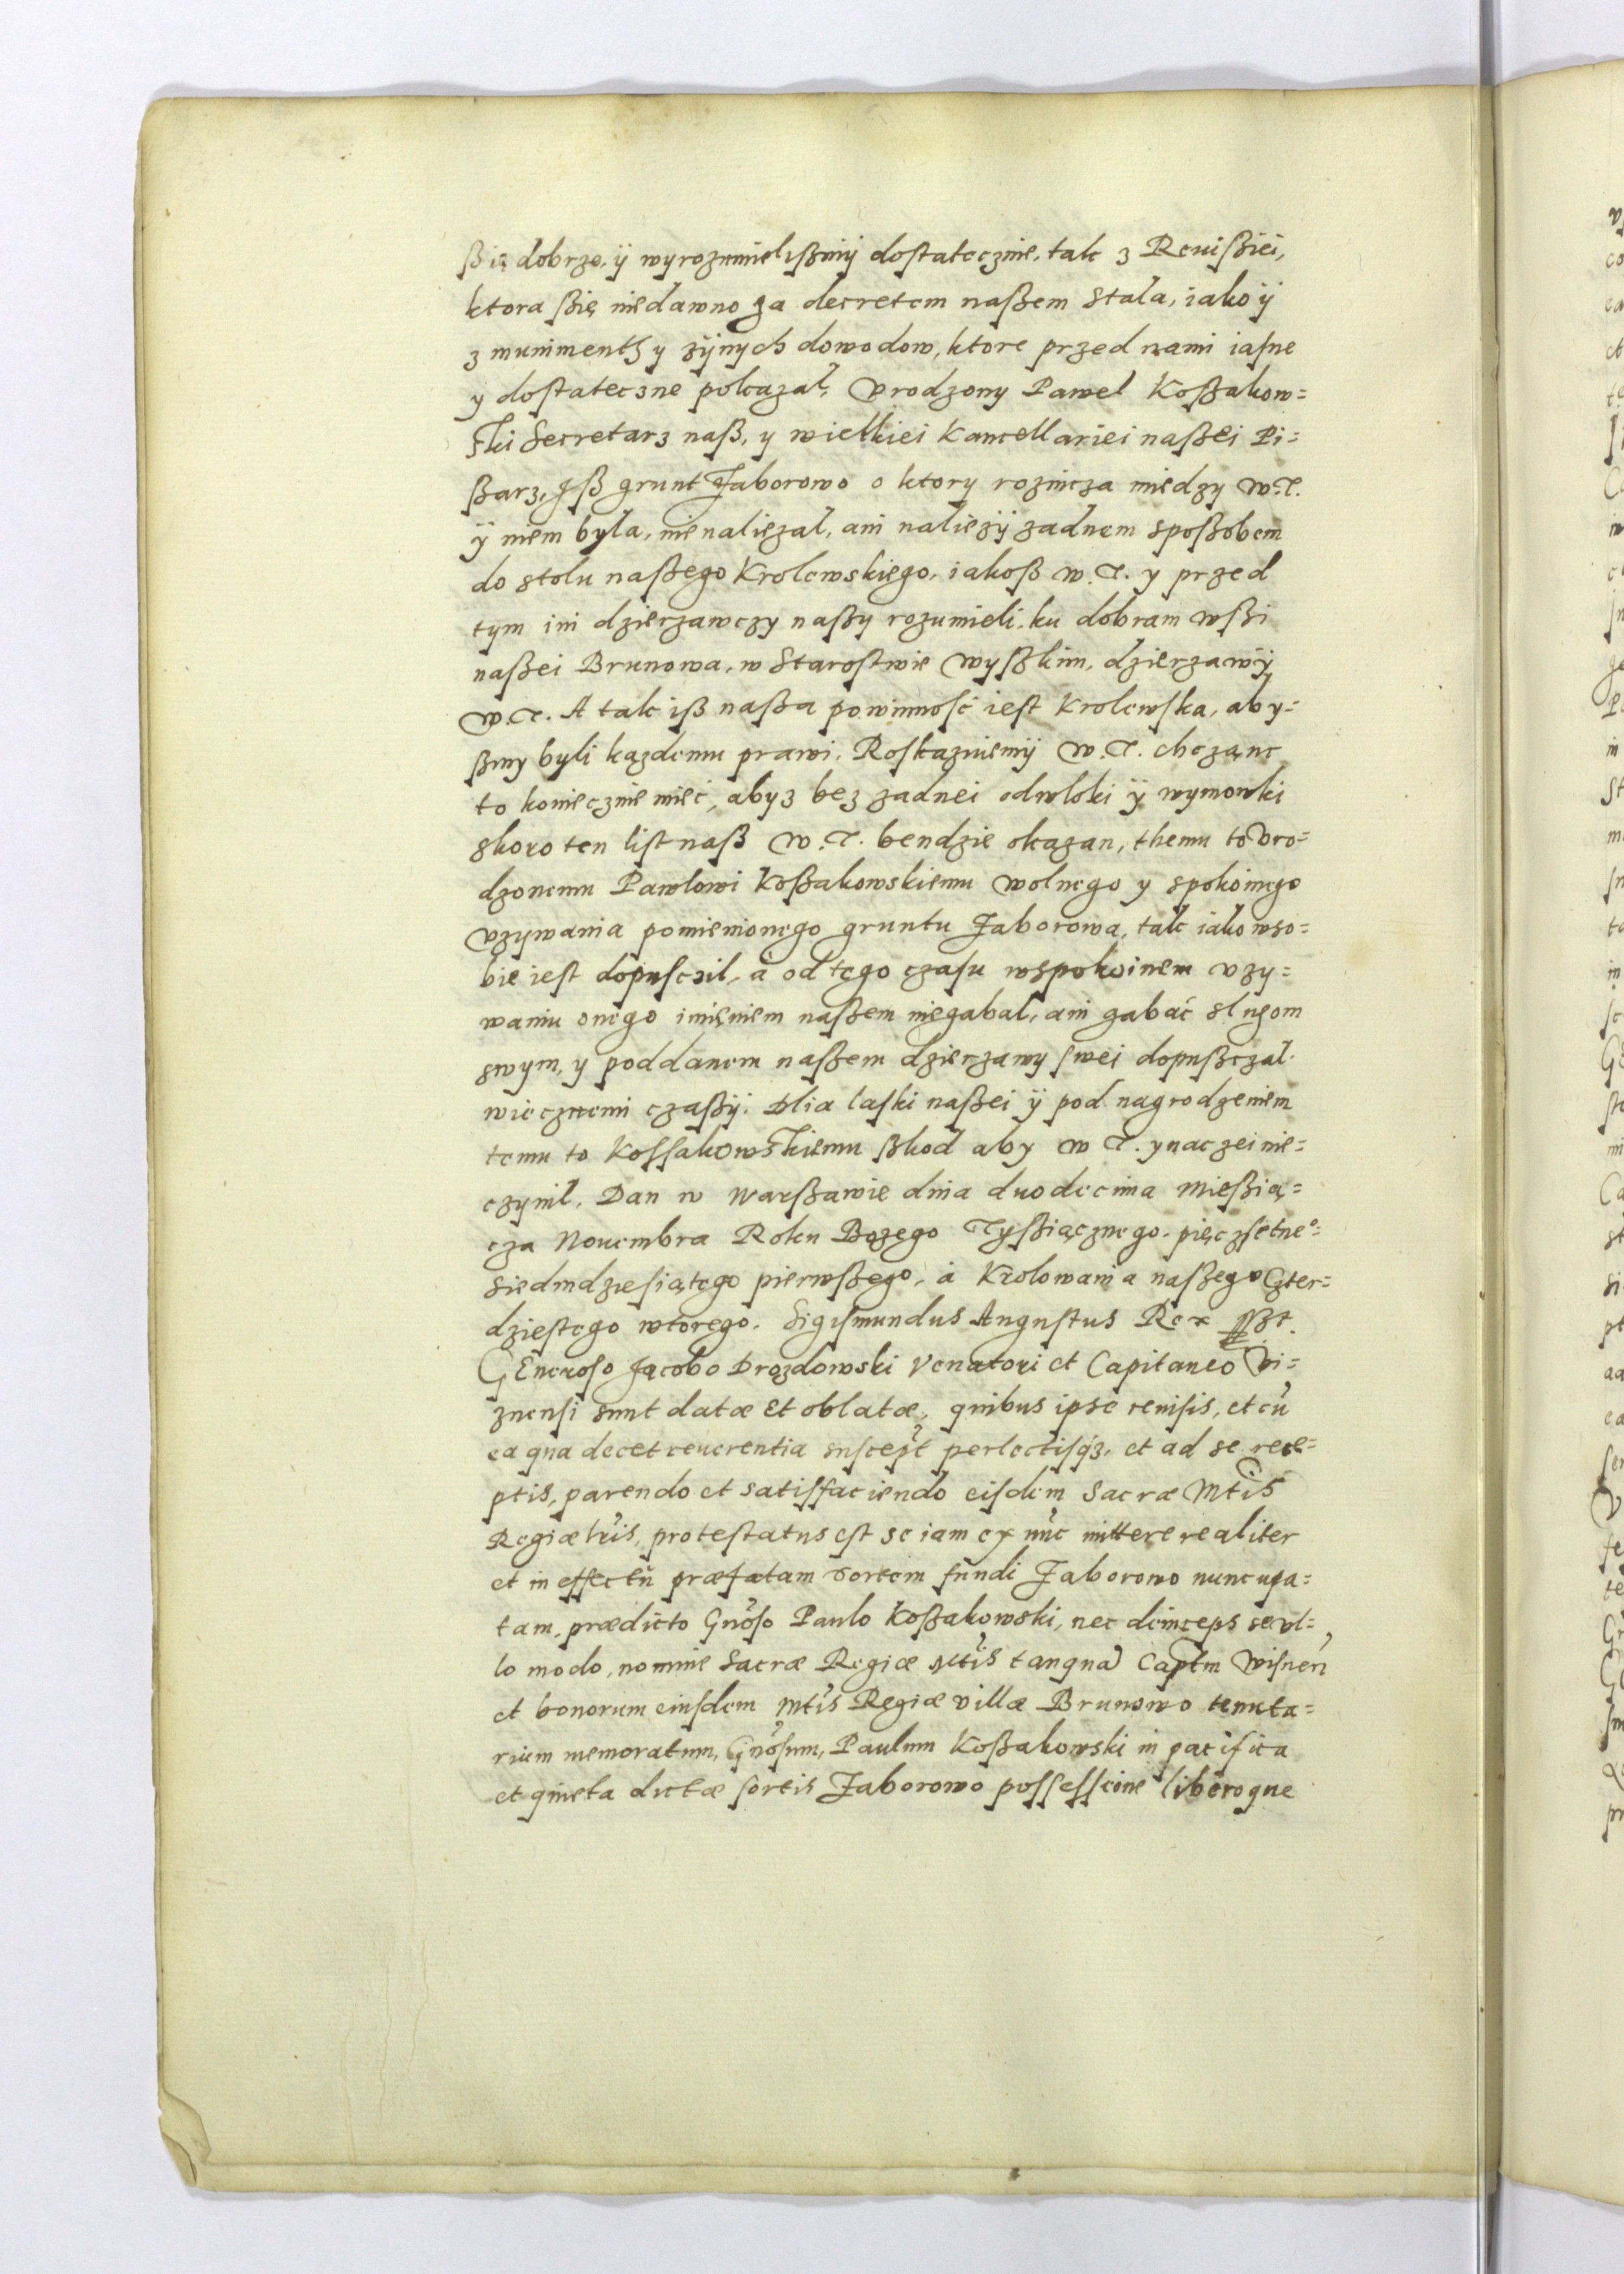 ßię dobrze, ÿ wyrozumielißmÿ dostatecznie, tak z Reuißiei,
ktora ßię niedawno za decretem naßem stala, iako ÿ
z muniments y zÿnych dowodow, ktore przed nami iasne
y dostateczne pokazal, Vrodzony Pawel Koßakow=
ski Secretarz naß, y wielkiei Kancellariei naßei Pi=
ßarz, yß grunt Jaborowo o ktory roznicza miedzy W.T.
ÿ niem byla, nienaliezal, ani naliezÿ zadnem sposßobem
do stolu naßego Krolewskiego, iakoß W.T. y przed
tym ini dzierzawczy naßy rozumieli, ku dobram wßi
naßei Brunowa, w Starostwie Wyßkim, dzierzawÿ
W.T. A tak iß naßa powinnosć iest Krolewska, aby=
ßmy byli kazdemu prawi, Roskazuiemÿ W.T. chcząnc
to koniecznie mieć, abyz bez zadnei odwloki ÿ wymowki
skoro ten list naß W.T. bendzie okazan, themu to Vro=
dzonemu Pawlowi Koßakowskiemu wolnego y spokoinego
vzywania pomienionego gruntu Jaborowa, tak iako wso=
bie iest dopuscil, a od tego czasu wspokoinem vzy=
waniu onego imięniem naßem niegabal, ani gabać slugom
swym, y poddanem naßem dzierzawy swei dopußczal
wiecznemi czaßÿ. Dlia laski naßei ÿ pod nagrodzeniem
temu to Kossakowskiemu ßkod aby W T. ynaczei nie=
czynil. Dan w Warßawie dnia duodecima Mießią=
cza Nouembra Roku Bozego Tyßiącznego, pięczsetne°=
siedmdziesiątego pierwßego, a Krolowania naßego Czter=
dziestego wtorego. Sigismundus Augustus Rex
GEneroso Jacobo Drozdowski Venatori et Capitaneo Vi=
znensi sunt datæ et oblatæ, quibus ipse reuisis, et cū
ea qua decet reuerentia suscept perlectisqз, et ad se rece=
ptis, parendo et satisfaciendo eisdem Sacræ Mtis
Regiæ lris, protestatus est se iam ex nūc mittere realiter
et in effectū præfatam sortem fundi Jaborowo nuncupa=
tam, prædicto Gnoso Paulo Koßakowski, nec deinceps se vl=
lo modo, nomine Sacræ Regiæ Mtis tanquā Captm Wisnen
et bonorum eiusdem Mtis Regiæ villæ Brunowo tenuta=
rium memoratum, Gnosum, Paulum Koßakowski in pacifica
et quieta dictæ sortis Jaborowo possessione liberoque